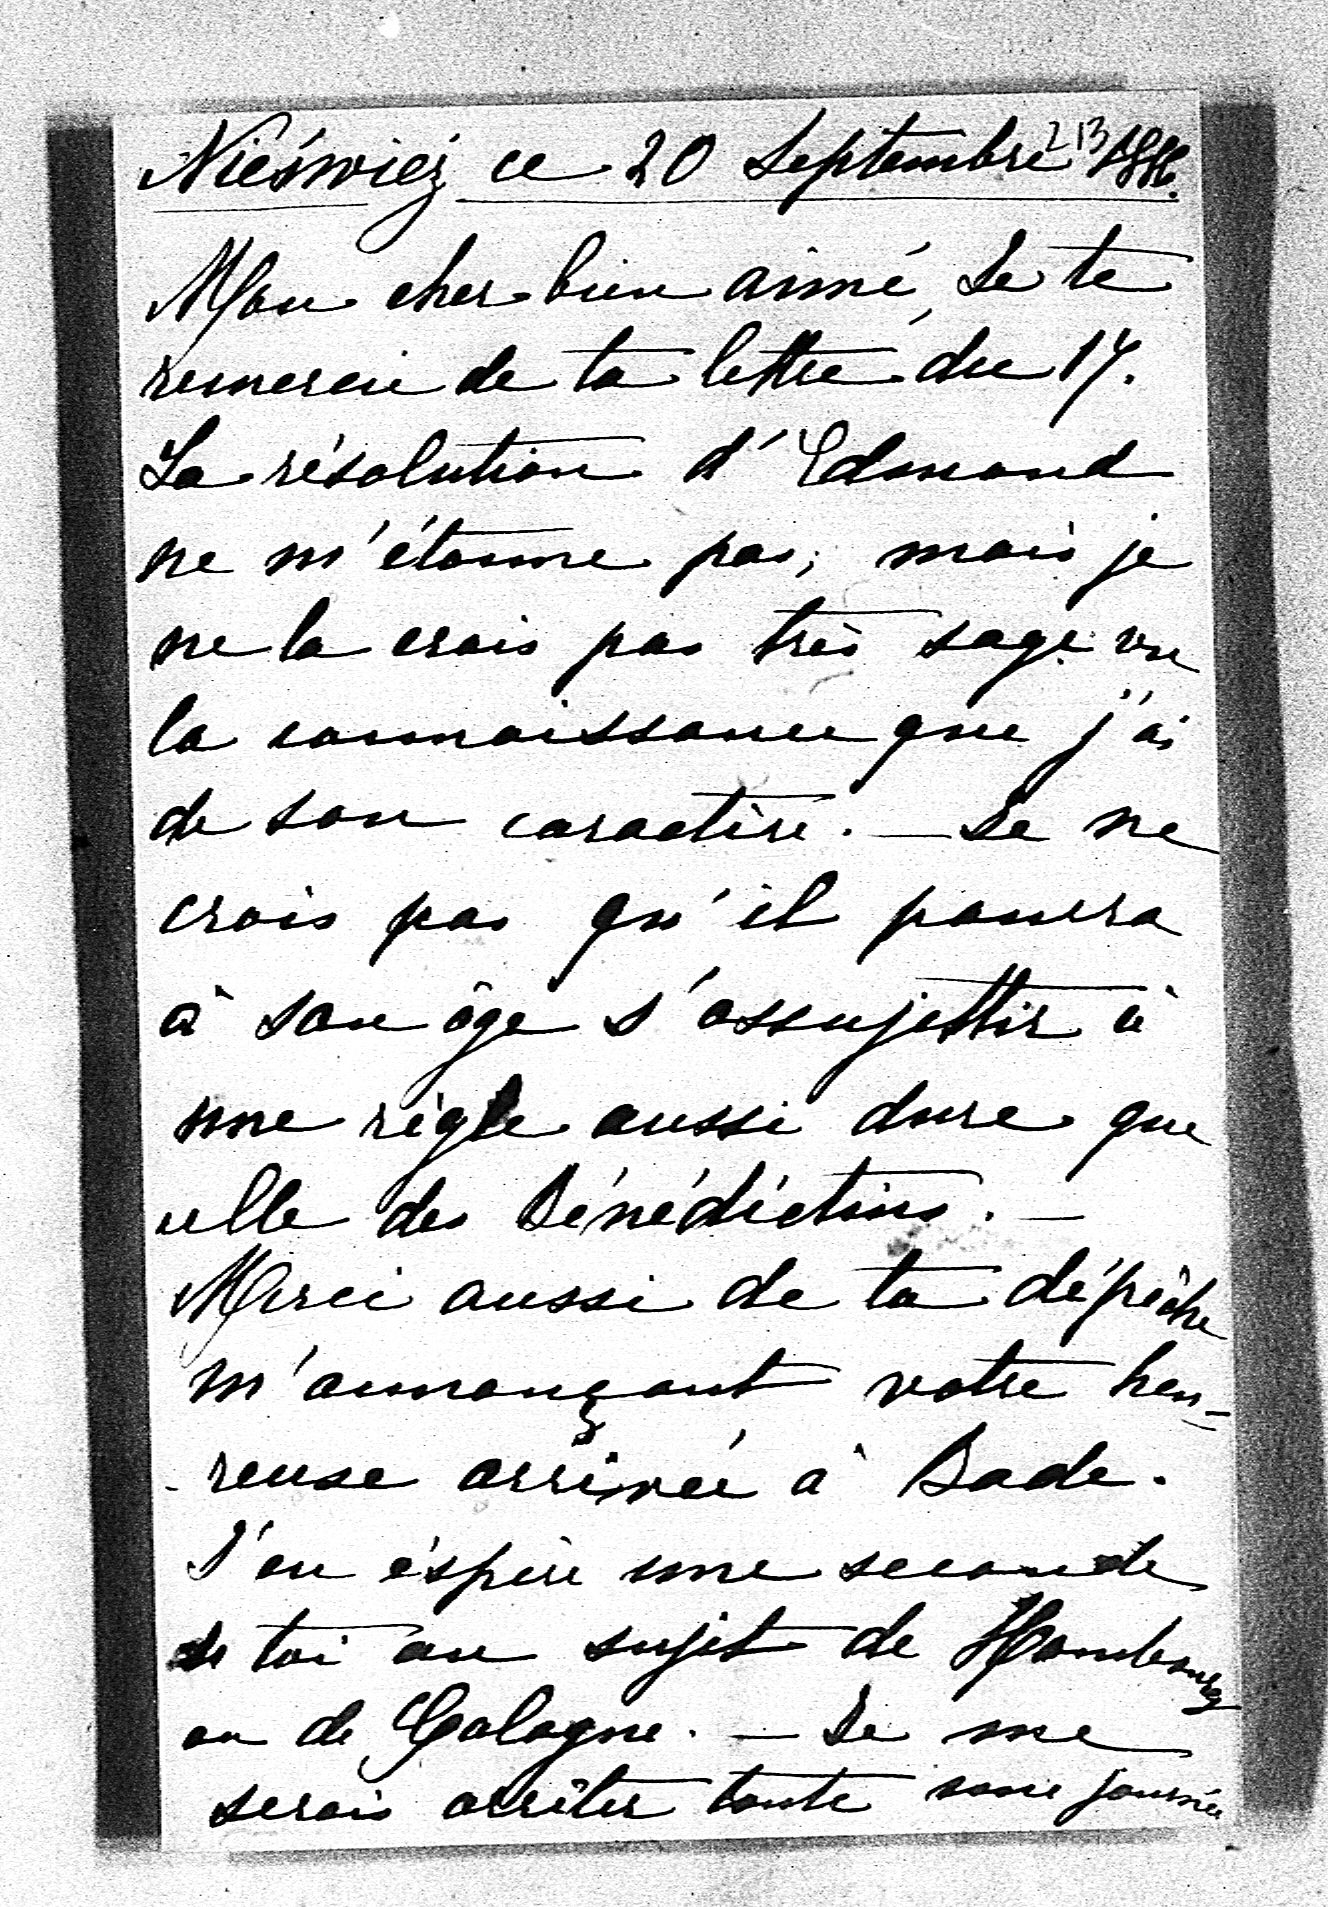 Nieśwież ce 20 Septembre 1886.
213
Mon cher bien aimé, Je te
remercie de ta lettre du 17.
La résolution d'Edmond
ne m'étonne pas, mais je
ne la crois pas très sage vu
la connaissance que j'ai
de son caractère. — Je ne
crois pas qu'il pourra
à son âge s'assujettir à
une règle aussi dure que
celle des Bénédictins. —
Merci aussi de ta dépêche
m'annonçant votre heu-
reuse arrivée à Bade.
J'en éspère une seconde
de toi au sujet de Hambourg
ou de Cologne. — Je me
serais arrêter toute une journée